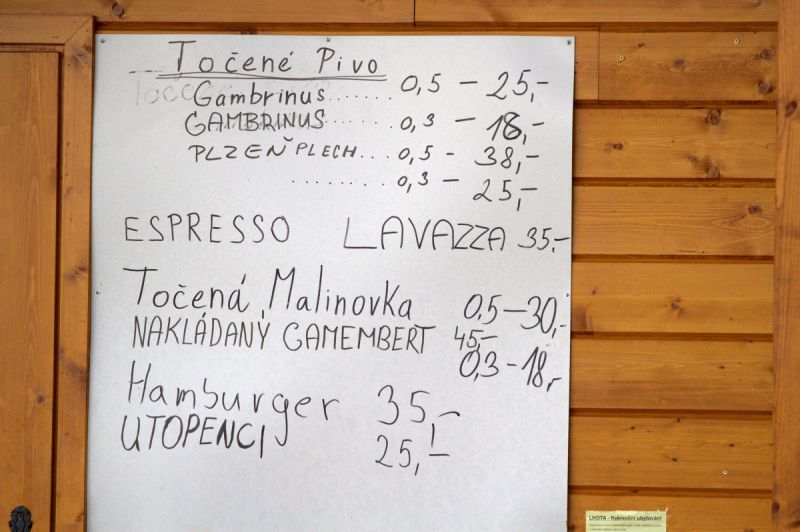 Točené Pivo
Gambrinus....... 0,5 – 25,-
GAMBRINUS 0,3 – 18,-
PLZEŇ PLECH... 0,5 - 38,-
........ 0,3 – 25,-
ESPRESSO LAVAZZA 35,-
Točená Malinovka 0,5–30,-
NAKLÁDANÝ CAMEMBERT 45,-
0,3-18,-
Hamburger 35,-
UTOPENCI 25,-
LHOTA - Rekreační ubytování